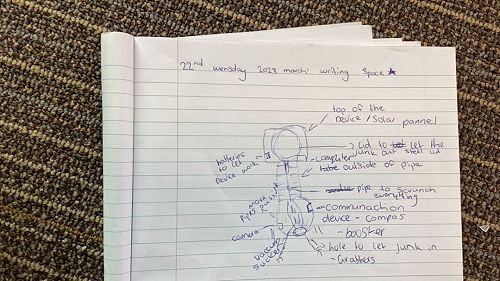 22nd wensday 2023 march! writing space
top of the
Device / Solar pannel
Lid to let the
junk out steel lid
batterys
to let
Device work
computer
outside of pipe
pipe to scrunch
everything
more
pipes
communaction
device - compas
camera
- booster
vaccum
sucker
hole to let junk in
- Grabbers